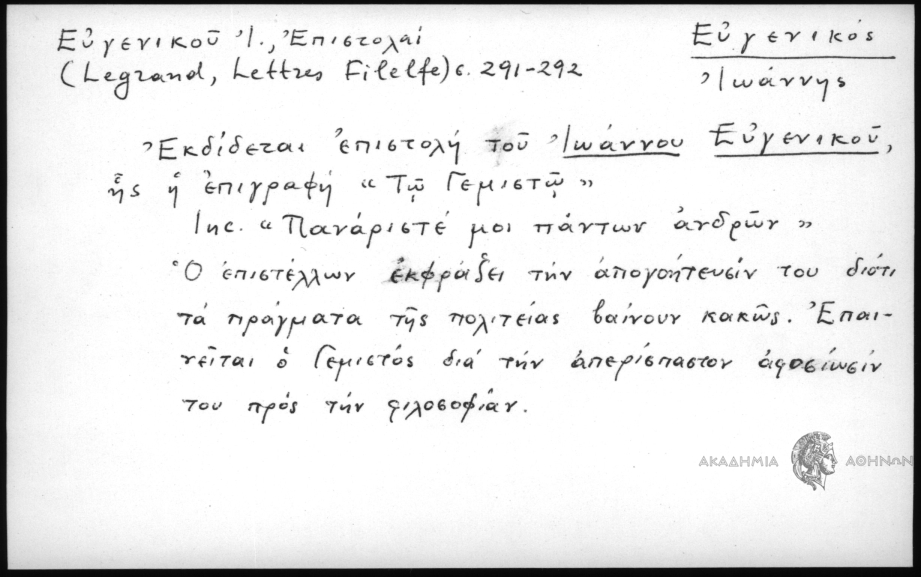 Εὐγενικοῦ Ἰ., Ἐπιστολαί
(Legrand, Lettres Filelfe) σ. 291-292
Εὐγενικός
Ἰωάννης
Ἐκδίδεται ἐπιστολή τοῦ Ἰωάννου Εὐγενικοῦ,
ἧς ἡ ἐπιγραφή « Τῷ Γεμιστῷ »
Inc. « Πανάριστέ μοι πάντων ἀνδρῶν »
Ὁ ἐπιστέλλων ἐκφράζει τήν ἀπογοήτευσίν του διότι
τά πράγματα τῆς πολιτείας βαίνουν κακῶς. Ἐπαι-
νεῖται ὁ Γεμιστός διά τήν ἀπερίσπαστον ἀφοσίωσίν
του πρός τήν φιλοσοφίαν.
ΑΚΑΔΗΜΙΑ ΑΘΗΝΩΝ